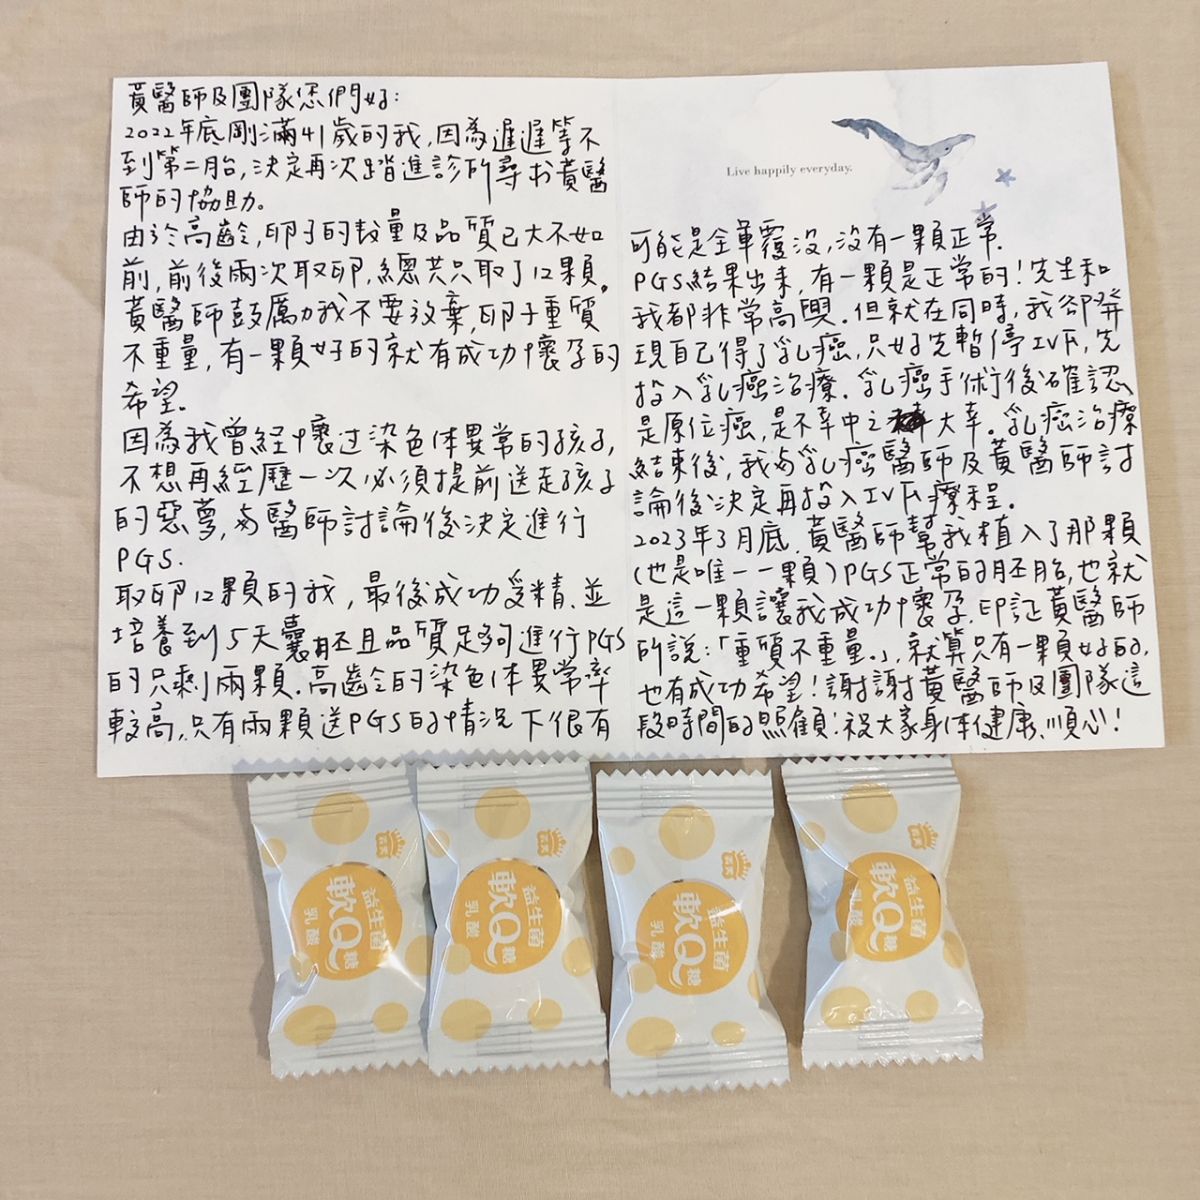 黃醫師及團隊您們好:
2022年底剛滿41歲的我,因為遲遲等不
到第二胎,決定再次踏進診所尋求黃醫
師的協助。
由於高齡,卵子的數量及品質已大不如
前,前後兩次取卵,總共只取了12顆。
黃醫師鼓勵我不要放棄,卵子重質
不重量,有一顆好的就有成功懷孕的
希望。
因為我曾經懷過染色体異常的孩子,
不想再經歷一次必須提前送走孩子
的惡夢,与醫師討論後決定進行
PGS.
取卵12顆的我,最後成功受精、並
培養到5天囊胚且品質足夠進行PGS
的只剩兩顆.高齡的染色体異常率
較高,只有兩顆送PGS的情況下很有
Live happily everyday.
可能是全軍覆沒,沒有一顆正常.
PGS結果出來,有一顆是正常的!先生和
我都非常高興.但就在同時,我卻發
現自己得了乳癌,只好先暫停IVF,先
投入乳癌治療.乳癌手術後確認
是原位癌,是不幸中之大幸。乳癌治療
結束後,我与乳癌醫師及黃醫師討
論後決定再投入IVF療程.
2023年3月底,黃醫師幫我植入了那顆
(也是唯一一顆)PGS正常的胚胎,也就
是這一顆讓我成功懷孕.印証黃醫師
所說:「重質不重量.」,就算只有一顆好的,
也有成功希望!謝謝黃醫師及團隊這
段時間的照顧!祝大家身体健康、順心!
森永
益生菌
軟Q糖
乳酸
森永
益生菌
軟Q糖
乳酸
森永
益生菌
軟Q糖
乳酸
森永
益生菌
軟Q糖
乳酸